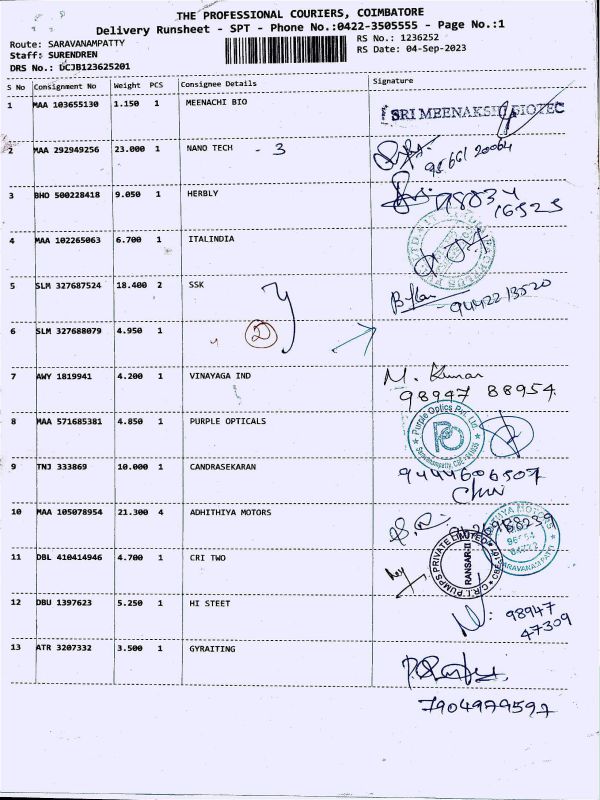 THE PROFESSIONAL COURIERS, COIMBATORE
Delivery Runsheet - SPT - Phone No.:0422-3505555 - Page No.:1
Route: SARAVANAMPATTY
RS No.: 1236252
Staff: SURENDREN
RS Date: 04-Sep-2023
DRS No.: DCJB123625201
S No Consignment No Weight PCS Consignee Details Signature
1 MAA 103655130 1.150 1 MEENACHI BIO
SRI MEENAKSHI BIOTEC
2 MAA 292949256 23.000 1 NANO TECH - 3
3 BHO 500228418 9.050 1 HERBLY
16525
4 MAA 102265063 6.700 1 ITALINDIA
5 SLM 327687524 18.400 2 SSK
9442213520
6 SLM 327688079 4.950 1
2
7 AWY 1819941 4.200 1 VINAYAGA IND
M. Kumar
98947 88954
8 MAA 571685381 4.850 1 PURPLE OPTICALS
Purple Optics Pvt. Ltd
9 TNJ 333869 10.000 1 CANDRASEKARAN
9444606507
10 MAA 105078954 21.300 4 ADHITHIYA MOTORS
11 DBL 410414946 4.700 1 CRI TWO
C.R.I. PUMPS PRIVATE LIMITED
12 DBU 1397623 5.250 1 HI STEET
98947
47309
13 ATR 3207332 3.500 1 GYRAITING
7904979597